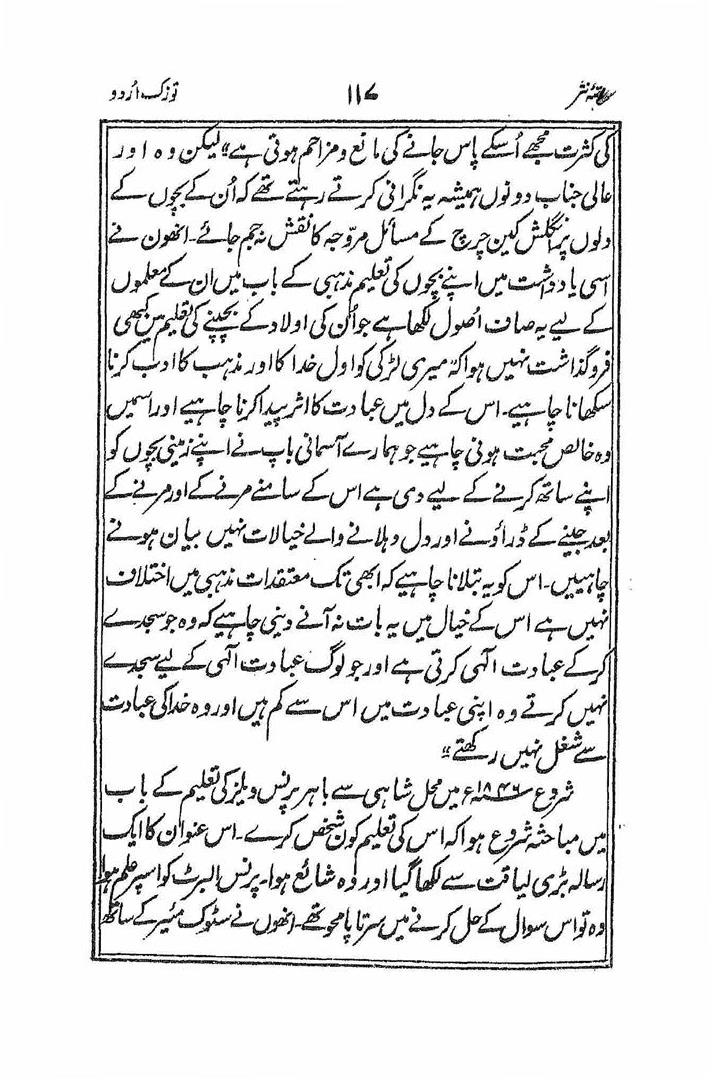 حصۂ نثر ۱۱۷ توزک اُردو
کی کثرت مجھے اُسکے پاس جانے کی مانع و مزاحم ہوتی ہے“ لیکن وہ اور
عالی جناب دونوں ہمیشہ یہ نگرانی کرتے رہتے تھے کہ اُن کے بچوں کے
دلوں پر انگلش کین چرچ کے مسائل مروّجہ کا نقش نہ جم جائے۔ انھون نے
اسی یادداشت میں اپنے بچوں کی تعلیم مذہبی کے باب میں ان کے معلموں
کے لیے یہ صاف اُصول لکھا ہے جو اُن کی اولاد کے بچپنے کی تعلیم میں کبھی
فروگذاشت نہیں ہوا کہ ”میری لڑکی کو اول خدا کا اور مذہب کا ادب کرنا
سکھانا چاہیے۔ اس کے دل میں عبادت کا اثر پیدا کرنا چاہیے اور اسمیں
وہ خالص محبت ہونی چاہیے جو ہمارے آسمانی باپ نے اپنے زمینی بچوں کو
اپنے ساتھ کرنے کے لیے دی ہے اس کے سامنے مرنے کے اور مرنے کے
بعد جینے کے ڈراؤنے اور دل دہلانے والے خیالات نہیں بیان ہونے
چاہییں۔ اس کو یہ بتلانا چاہیے کہ ابھی تک معتقدات مذہبی میں اختلاف
نہیں ہے اس کے خیال میں یہ بات نہ آنے دینی چاہیے کہ وہ جو سجدے
کرکے عبادت الٰہی کرتی ہے اور جو لوگ عبادت الٰہی کے لیے سجدے
نہیں کرتے وہ اپنی عبادت میں اس سے کم ہیں اور وہ خدا کی عبادت
سے شغل نہیں رکھتے“
شروع ۱۸۴۶ء میں محل شاہی سے باہر پرنس ویلز کی تعلیم کے باب
میں مباحثہ شروع ہوا کہ اس کی تعلیم کون شخص کرے۔ اس عنوان کا ایک
رسالہ بڑی لیاقت سے لکھا گیا اور وہ شائع ہوا۔ پرنس البرٹ کو اسپر علم ہوا
وہ تو اس سوال کے حل کرنے میں سرتاپا محو تھے۔ انھوں نے سٹوک مئیر کے ساتھ